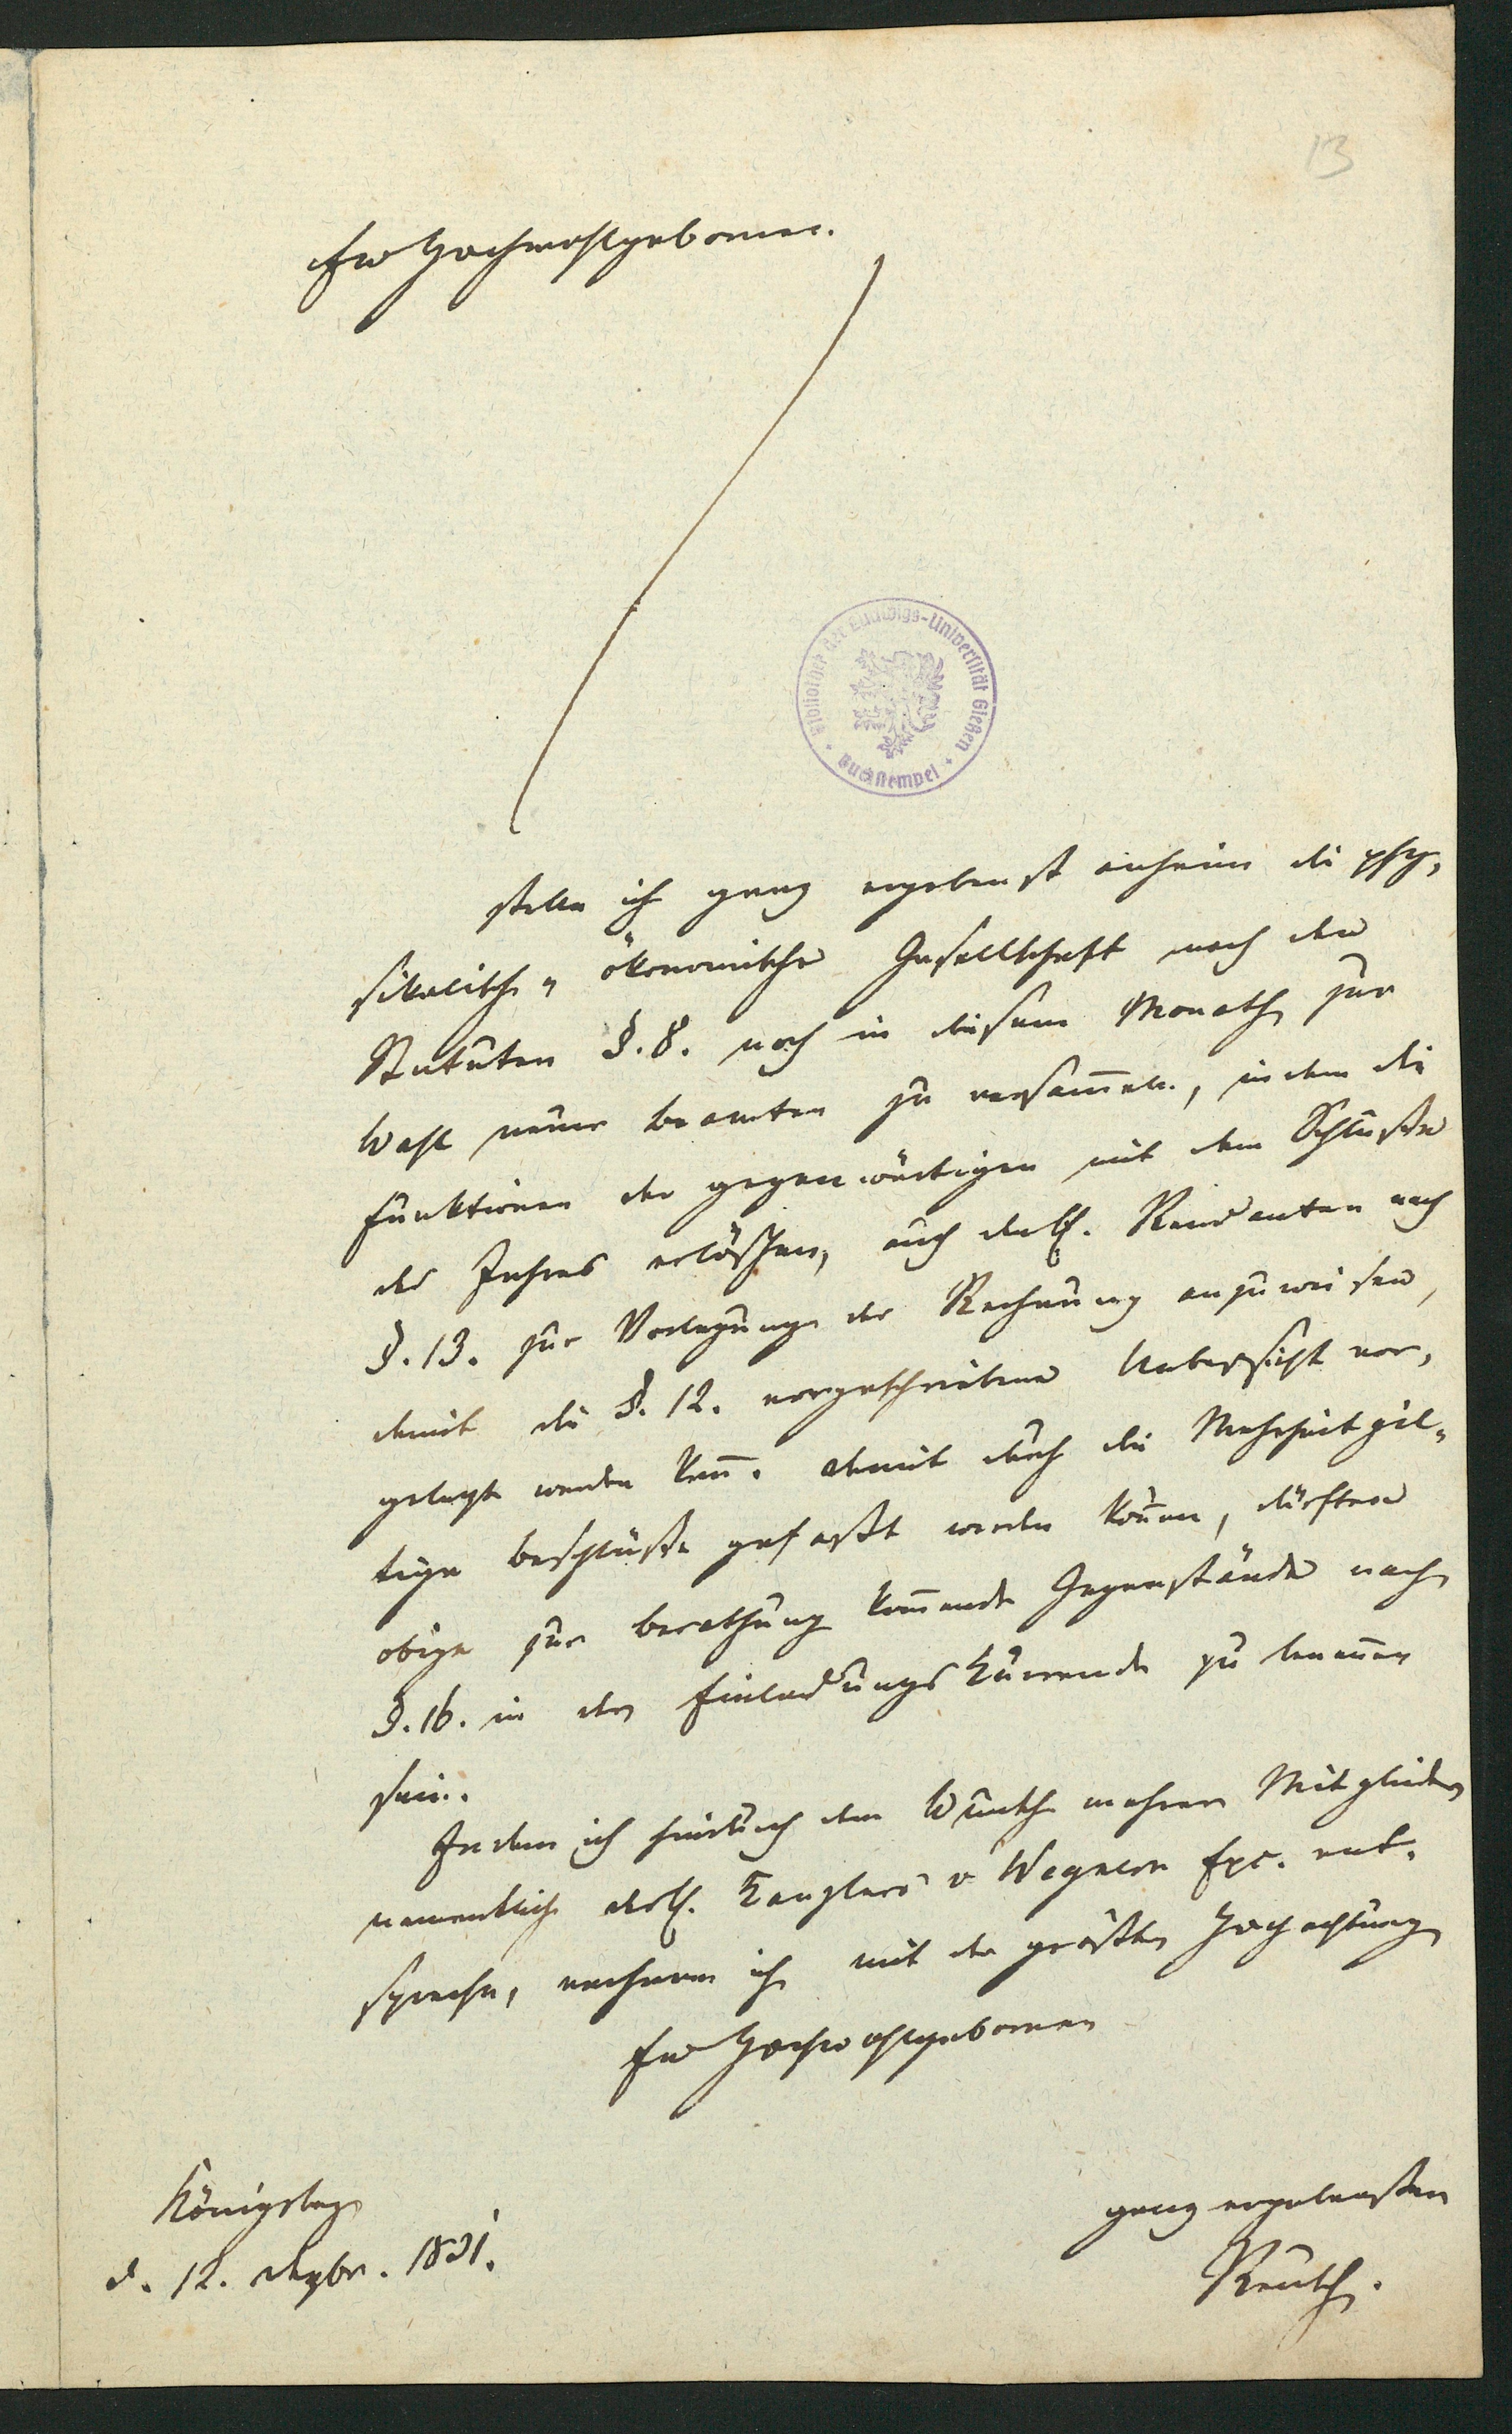 13
Ew Hochwohlgeboren
stelle ich ganz ergebenst anheim die phy-
sikalisch-ökonomische Gesellschaft nach den
Statuten §. 8. noch in diesem Monath zur
Wahl neuer Beamten zu versam̄eln, indem die
Funktionen der gegenwärtigen mit dem Schluße
des Jahres erlöschen, auch den H. Rendanten nach
§. 13. zur Vorlegung der Rechnung anzuweisen,
damit die §. 12. vorgeschriebene Uebersicht vor-
gelegt werden kan̄. Damit durch die Mehrheit gül-
tige Beschlüße gefaßt werden kön̄en, dürften
obige zur Berathung kom̄ende Gegenstände nach
§. 16. in der Einladungs Kurrende zu benen̄en
sein.
Indem ich hiedurch dem Wunsche mehrer Mitglieder
namentlich des H. Kanzlers v Wegnern Exc. ent-
spreche, verharre ich mit der größten Hochachtung
Ew Hochwohlgeboren
Königsberg
d. 12. Dezbr. 1831.
ganz ergebenster
Bibliothek der Ludwigs-Universität Gießen
Buchstempel